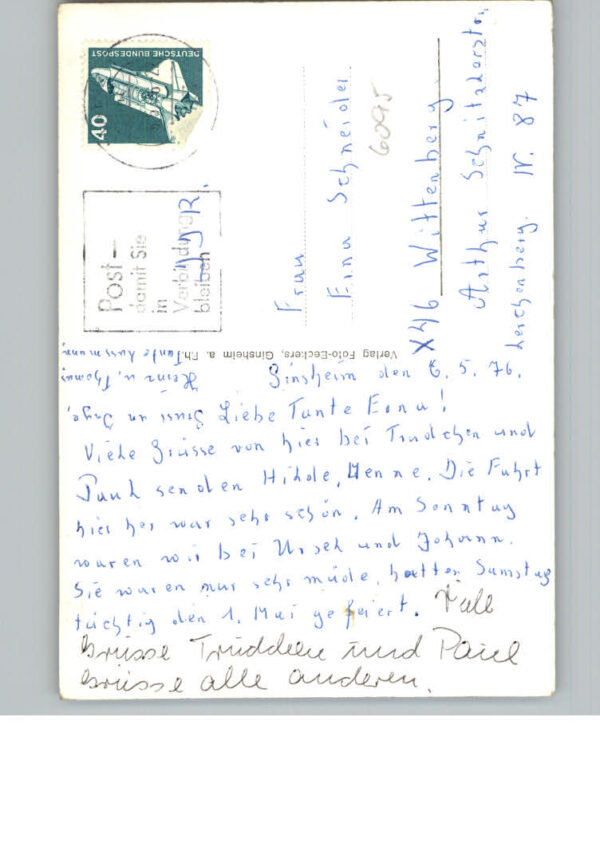 DEUTSCHE BUNDESPOST
40
Post –
damit Sie
in
Verbindung
bleiben
Frau
Erna Schneider
6095
X46 Wittenberg
Arthur Schnitzlerstr.
Lerchenberg. Nr. 87
Verlag Foto-Eeckers, Ginsheim a. Rh.
Ginsheim den 6. 5. 76.
Liebe Tante Erna!
Viele Grüsse von hier bei Trudchen und
Paul senden Hilde, Menne. Die Fahrt
hier her war sehr schön. Am Sonntag
waren wir bei Ursel und Johann.
Sie waren nur sehr müde, hatten Samstag
tüchtig den 1. Mai gefeiert.
Grüsse Trudchen und Paul
Grüsse alle anderen.
Gruss an Inge,
Heinz u. Thomas
Tante